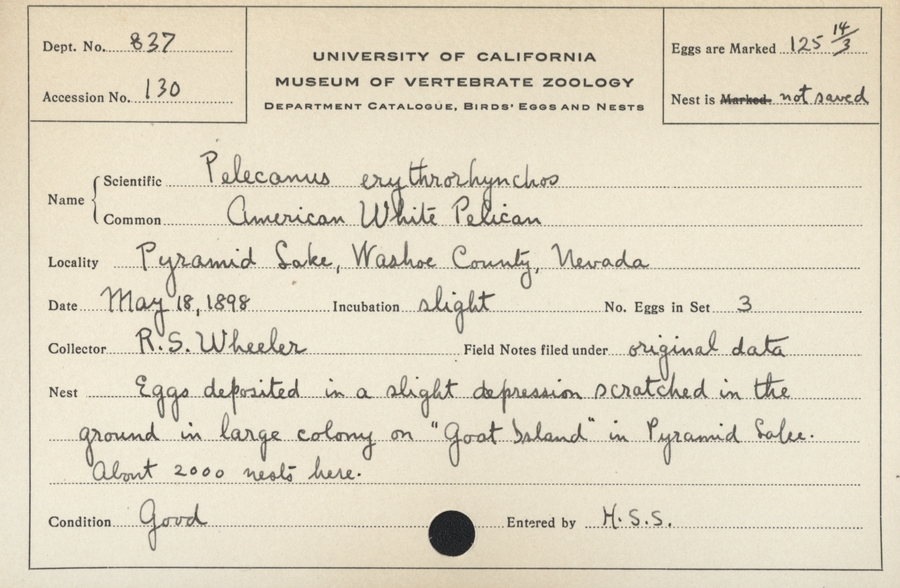 Dept. No. 837
Accession No. 130
UNIVERSITY OF CALIFORNIA
MUSEUM OF VERTEBRATE ZOOLOGY
DEPARTMENT CATALOGUE, BIRDS' EGGS AND NESTS
Eggs are Marked 125 14/3
Nest is Marked. not saved
Name { Scientific Pelecanus erythrorhynchos
Common American White Pelican
Locality Pyramid Lake, Washoe County, Nevada
Date May 18, 1898 Incubation slight No. Eggs in Set 3
Collector R.S. Wheeler Field Notes filed under original data
Nest Eggs deposited in a slight depression scratched in the
ground in large colony on "Goat Island" in Pyramid Lake.
About 2000 nests here.
Condition Good Entered by H.S.S.